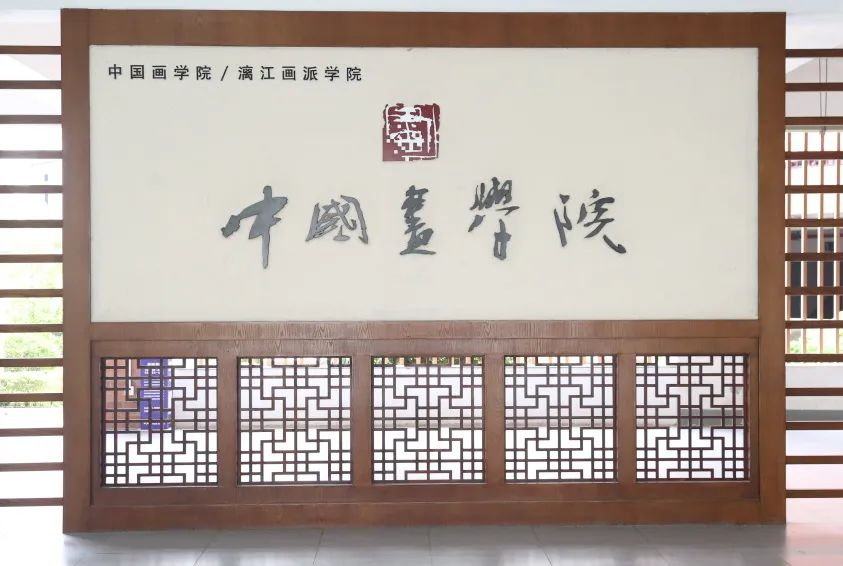 中国画学院/漓江画派学院
中國畫學院